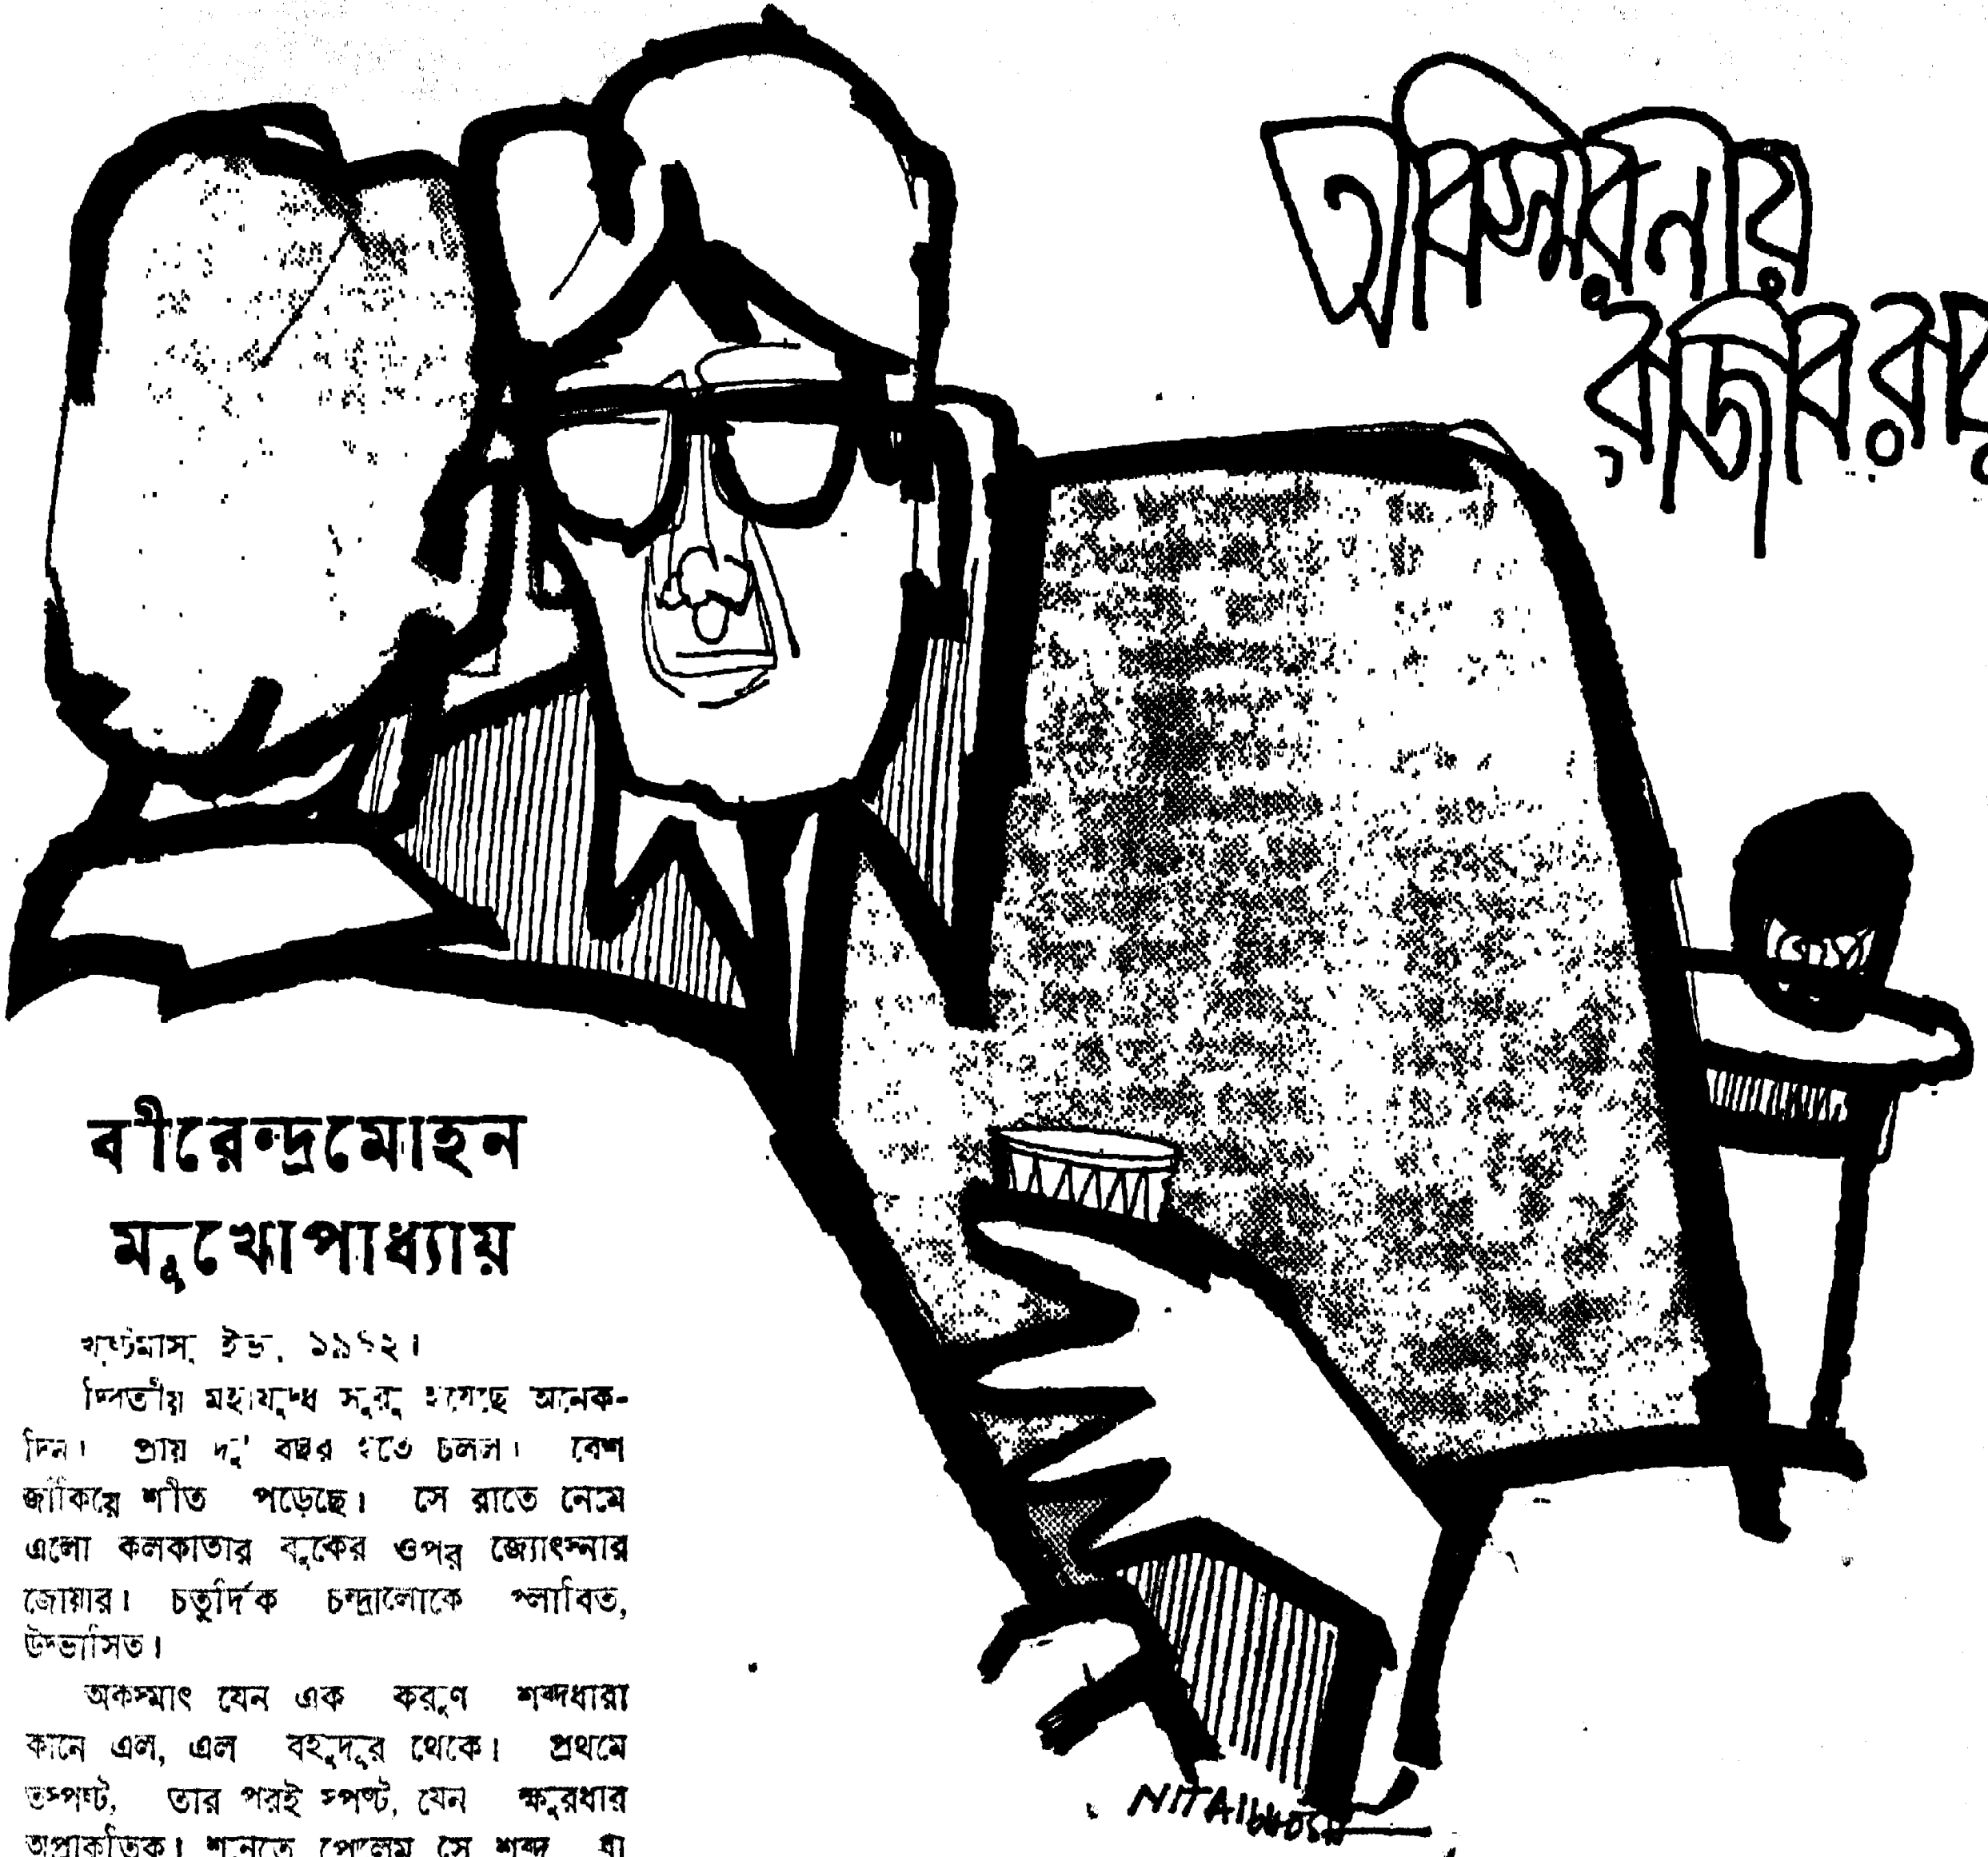 অবিস্মরনীয়
রাজীব রায়
বীরেন্দ্রমোহন
মুখোপাধ্যায়
খৃষ্টমাস ইভ, ১৯৪২।
দ্বিতীয় মহাযুদ্ধ সুরু হয়েছে অনেক-
দিন। প্রায় দু' বছর হতে চলল। বেশ
জাঁকিয়ে শীত পড়েছে। সে রাতে নেমে
এলো কলকাতার বুকের ওপর জ্যোৎস্নার
জোয়ার। চতুর্দিক চন্দ্রালোকে প্লাবিত,
উদ্ভাসিত।
অকস্মাৎ যেন এক করুণ শব্দধারা
কানে এল, এল বহুদূর থেকে। প্রথমে
অস্পষ্ট, তার পরই স্পষ্ট, যেন ক্ষুরধার
অপ্রাকৃতিক। শুনতে পেলেম সে শব্দ
NITAI GHOSH